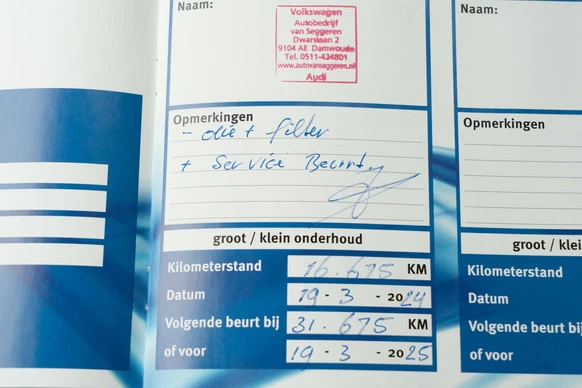 Naam:
Volkswagen
Autobedrijf
van Seggeren
Dwarslaan 2
9104 AE Damwoude
Tel. 0511-424801
www.autovanseggeren.nl
Audi
Opmerkingen
- olie + filter
+ Service Beurt
groot / klein onderhoud
Kilometerstand 16.675 KM
Datum 19 - 3 - 2024
Volgende beurt bij 31.675 KM
of voor 19 - 3 - 2025
Naam:
Opmerkingen
groot / klei
Kilometerstand
Datum
Volgende beurt bij
of voor